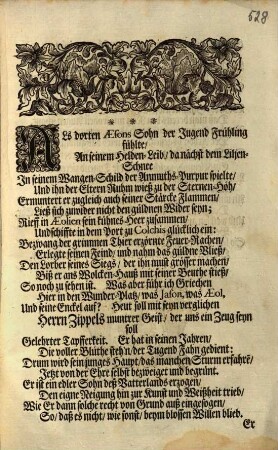 528
Als dorten Æsons Sohn der Jugend Frühling
fühlte/
An seinem Helden-Leib/ da nächst dem Liljen-
Schnee
In seinem Wangen-Schild der Anmuths-Purpur spielte/
Und ihn der Eltern Ruhm wieß zu der Sternen-Höh/
Ermuntert er zugleich auch seiner Stärcke Flammen/
Ließ sich zuwider nicht den güldnen Wider seyn;
Rieff in Æolien sein kühnes Heer zusammen/
Und schiffte in dem Port zu Colchis glücklich ein:
Bezwang der grimmen Thier erzörnte Feuer-Rachen/
Erlegte seinen Feind/ und nahm das güldne Vließ;
Den Lorber seines Siegs/ der ihn must grösser machen/
Biß er ans Wolcken-Hauß mit seiner Beuthe stieß/
So noch zu sehen ist. Was aber führ ich Griechen
Hier in den Wunder-Platz/ was Jason, was Æol,
Und seine Enckel auf? Heut soll mit seyn verglichen
Herrn Zippels muntrer Geist/ der uns ein Zeug seyn
soll
Gelehrter Tapfferkeit. Er hat in seinen Jahren/
Die voller Blüthe stehn/ der Tugend Fahn gediehet:
Drum wird sein junges Haupt/ das manchen Sturm erfahrē/
Jetzt von der Ehre selbst bezweiget und begrünt.
Er ist ein edler Sohn deß Vatterlands erzogen/
Den eigne Neigung hin zur Kunst und Weißheit trieb/
Wie Er dann solche recht von Grund auß eingesogen/
So/ daß es nicht/ wie sonst/ beym blossen Willen blieb.
Er